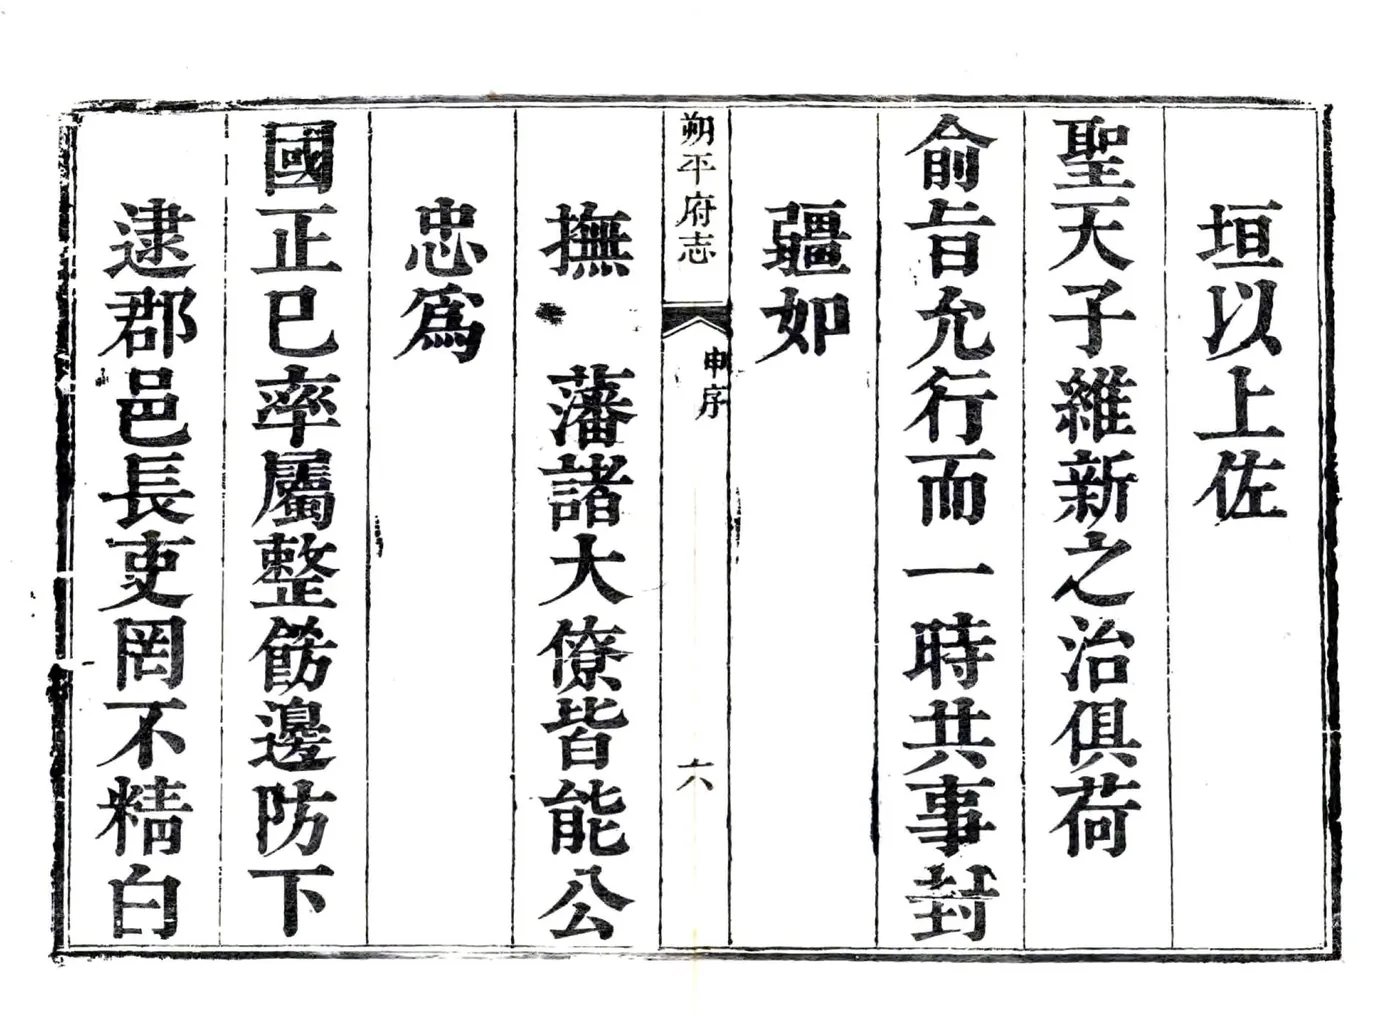 垣以上佐
聖天子維新之治俱荷
俞旨允行而一時共事封
疆如
朔平府志
申序
六
撫 藩諸大僚皆能公
忠爲
國正已率屬整飭邊防下
逮郡邑長吏罔不精白